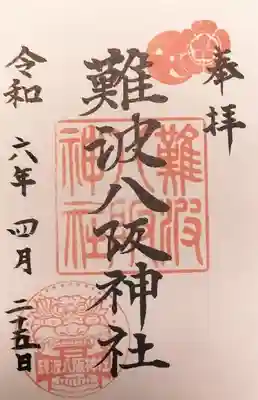 奉拝
難波八阪神社
令和六年四月二十五日
難波
八阪
神社
難波八阪神社